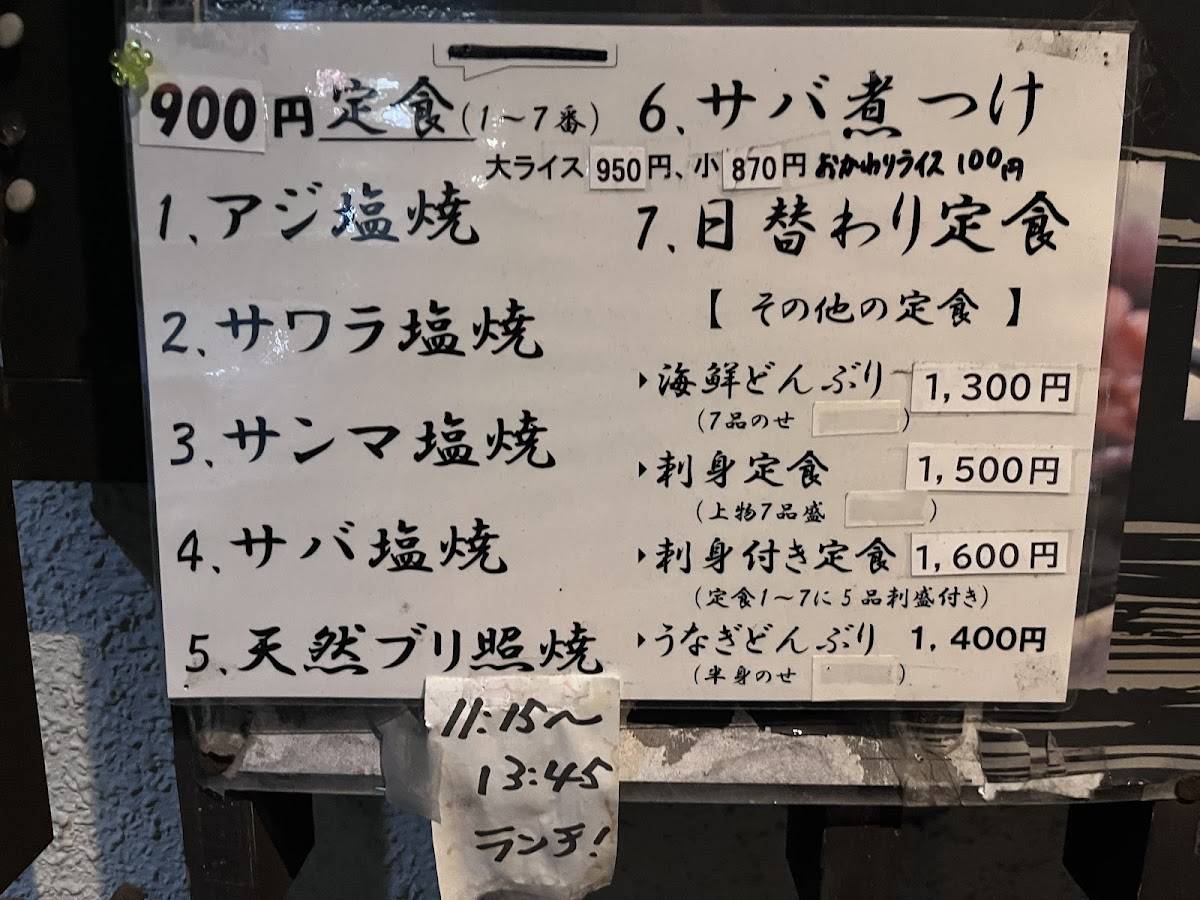 900円定食(1～7番)
1、アジ塩焼
2、サワラ塩焼
3、サンマ塩焼
4、サバ塩焼
5、天然ブリ照焼
6、サバ煮つけ
大ライス950円、小870円おかわりライス100円
7、日替わり定食
【その他の定食】
海鮮どんぶり 1,300円
(7品のせ )
刺身定食 1,500円
(上物7品盛 )
刺身付き定食 1,600円
(定食1～7に5品刺盛付き)
うなぎどんぶり 1,400円
(半身のせ )
11:15～
13:45
ランチ!